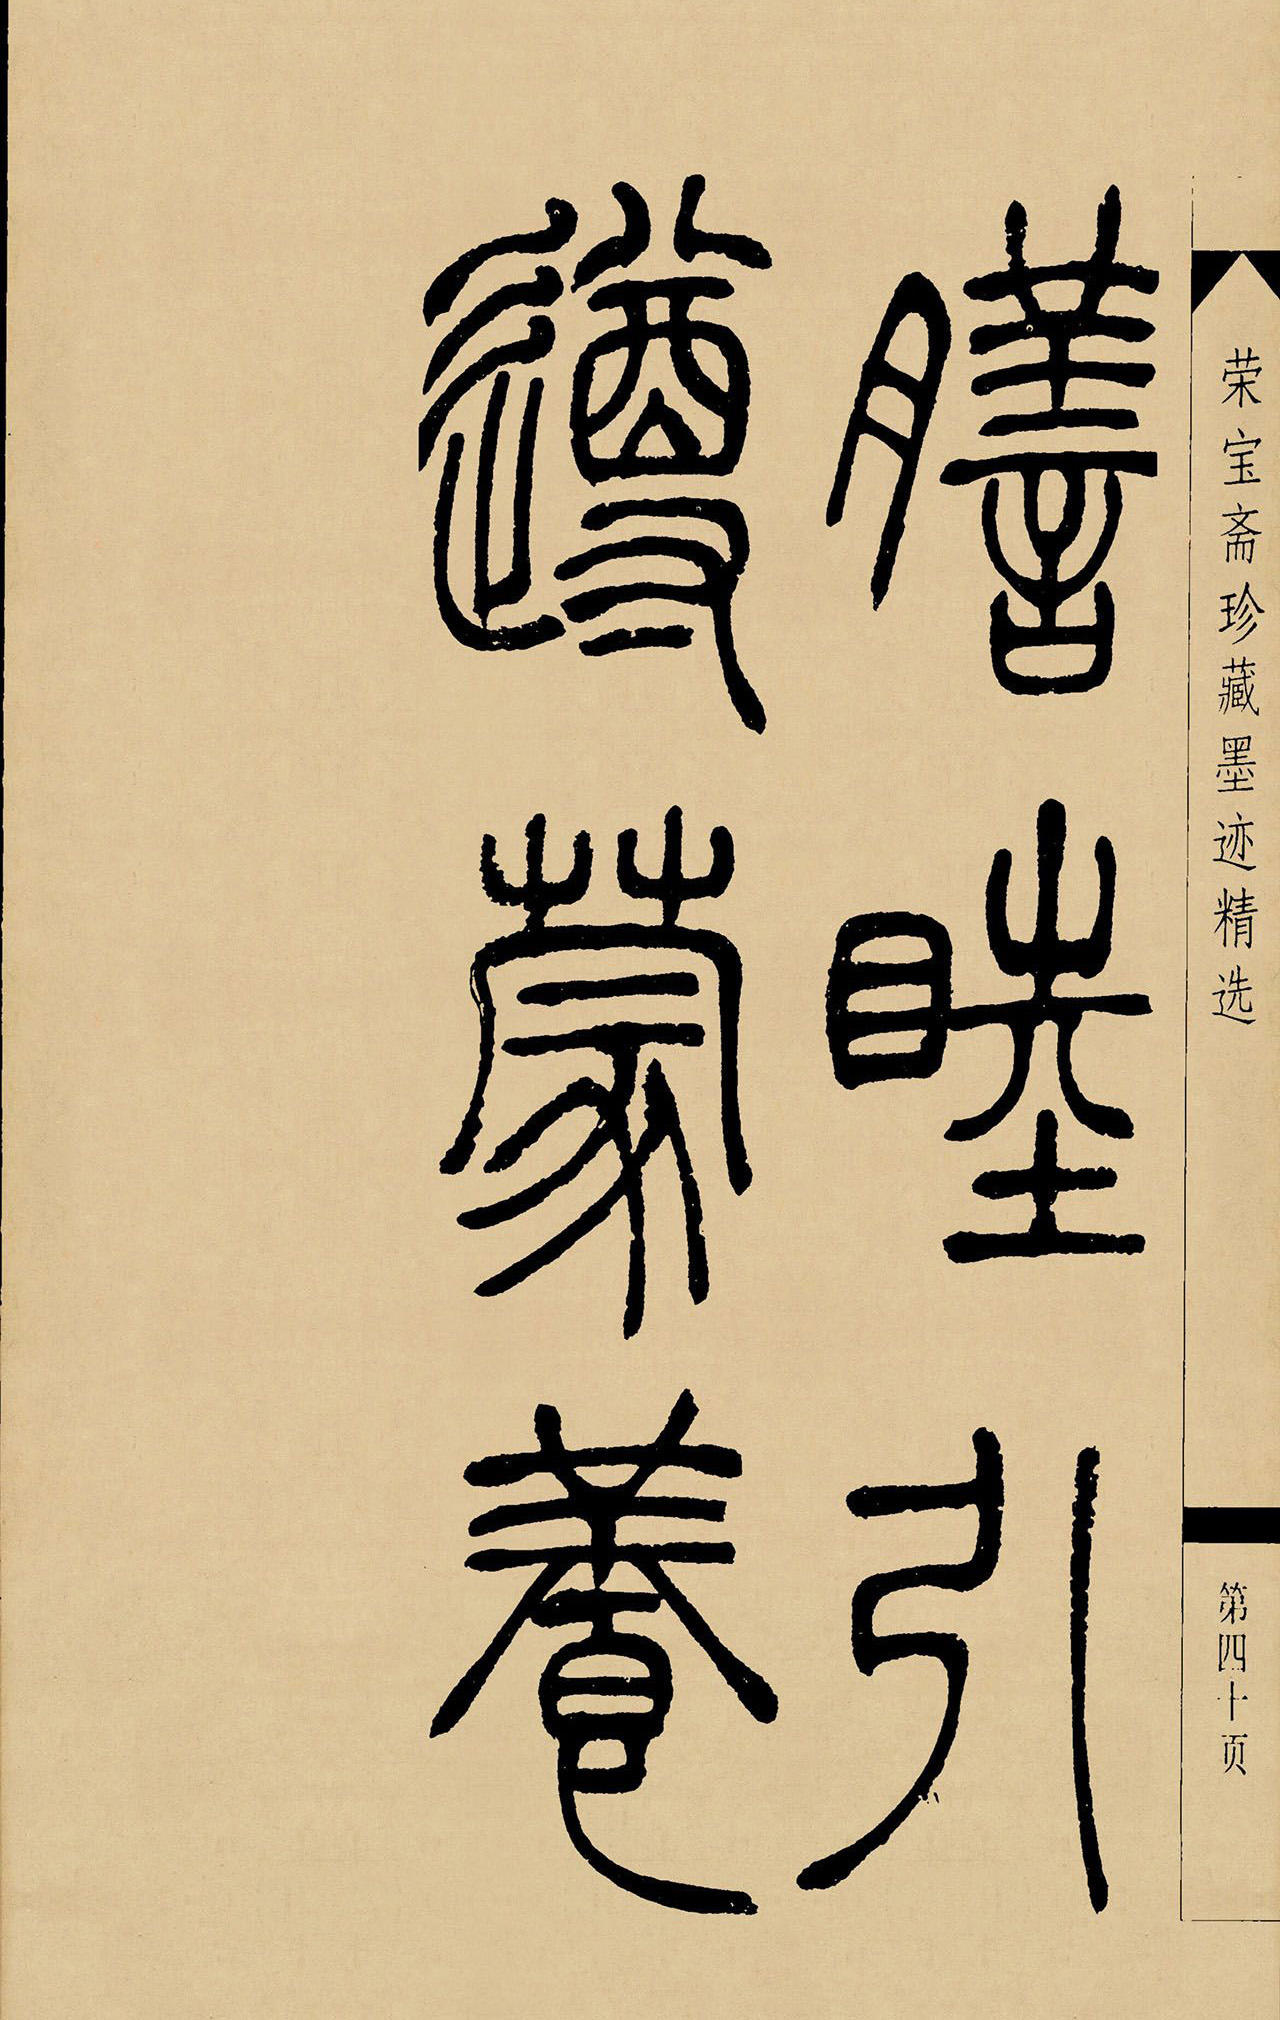 荣宝斋珍藏墨迹精选
第四十页
膳睦引
遵蒙养